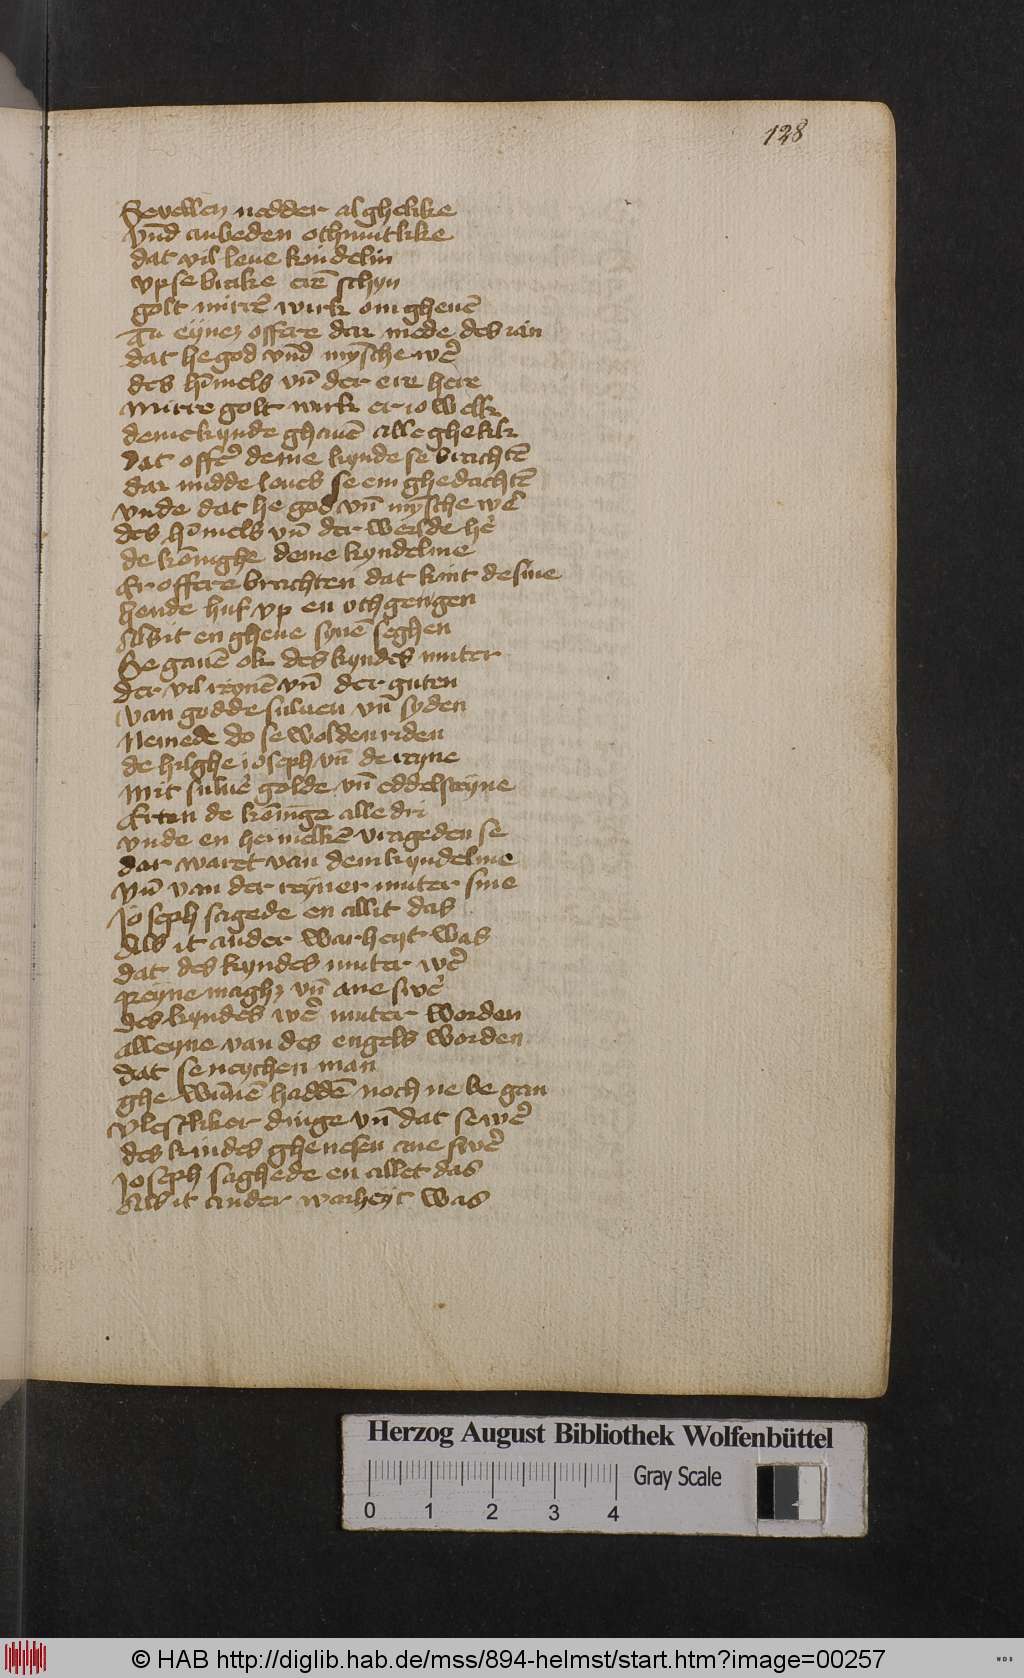 128
Se vellen nedder al ghelike
vnd anbeden othmutlike
dat vil leue kindelin
vp se blicke ere schyn
golt mirre wirk om gheue
To eynen offere dar mede des ian
dat he god vnd mynsche wer
des hemels vn der ere here
Mirre golt wirk er io welk
deme kynde ghaue alle ghelik
dat offer deme kynde se brachte
dar midde loues se em ghedachte
vnde dat he god vn mynsche wer
des hemels vn der werlde her
de koninghe deme kyndeline
Er offere brachten dat kint de sine
hende huf vp en othgengen
Als it en gheue syne seghen
Se gaue ok des kyndes muter
der vil reyne vn der guten
van godde suluen vn syden
Nemede do se wolden riden
de hilghe ioseph vn de reyne
Mit suluer golde vn eddelsteyne
Erten de koninge alle dri
vnde en heimelke vrageden se
dar waret van dem kyndeline
vn van der reyner muter sine
Joseph sagede en allit das
Als it an der warheyt was
dat des kyndes muter wer
Reyne maghz vn ane swer
des kyndes wer muter worden
alleyne van des engels worden
dat se neychen man
ghe wunne hadde noch ne be gan
vlesliker dinge vn dat se wer
des kindes ghenesen ane swer
Joseph saghede en allet das
Als it an der warheyt was
Herzog August Bibliothek Wolfenbüttel
Gray Scale
0 1 2 3 4
© HAB http://diglib.hab.de/mss/894-helmst/start.htm?image=00257